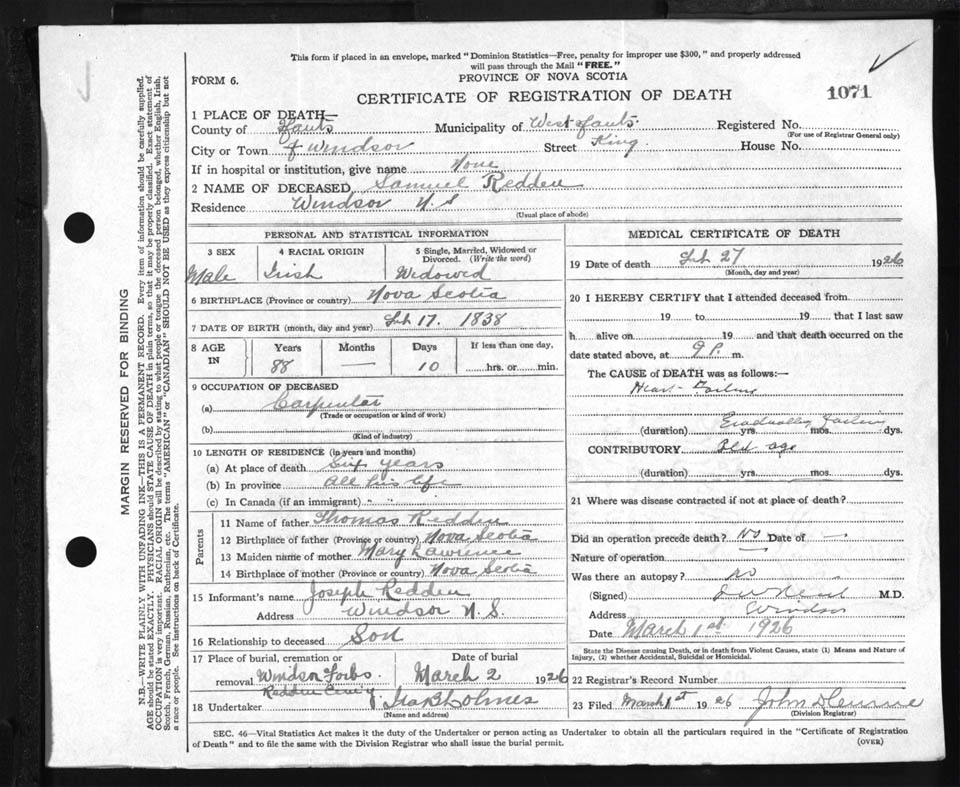 This form if placed in an envelope, marked "Dominion Statistics—Free, penalty for improper use $300," and properly addressed
will pass through the Mail "FREE."
FORM 6.
PROVINCE OF NOVA SCOTIA
CERTIFICATE OF REGISTRATION OF DEATH
1071
1 PLACE OF DEATH—
County of Hants Municipality of West Hants Registered No.
(For use of Registrar General only)
City or Town of Windsor Street King House No.
If in hospital or institution, give name None
2 NAME OF DECEASED Samuel Redden
Residence Windsor N.S
(Usual place of abode)
PERSONAL AND STATISTICAL INFORMATION
3 SEX 4 RACIAL ORIGIN 5 Single, Married, Widowed or Divorced. (Write the word)
Male Irish Widowed
6 BIRTHPLACE (Province or country) Nova Scotia
7 DATE OF BIRTH (month, day and year) Feb 17. 1838
8 AGE IN Years Months Days If less than one day,
88 — 10 hrs. or min.
9 OCCUPATION OF DECEASED
(a) Carpenter
(Trade or occupation or kind of work)
(b)
(Kind of industry)
10 LENGTH OF RESIDENCE (in years and months)
(a) At place of death Six years
(b) In province All his life
(c) In Canada (if an immigrant) " "
Parents
11 Name of father Thomas Redden
12 Birthplace of father (Province or country) Nova Scotia
13 Maiden name of mother Mary Lawrence
14 Birthplace of mother (Province or country) Nova Scotia
15 Informant's name Joseph Redden
Address Windsor N.S
16 Relationship to deceased Son
17 Place of burial, cremation or removal Windsor Forks Redden Date of burial March 2 1926
18 Undertaker Holmes
(Name and address)
MEDICAL CERTIFICATE OF DEATH
19 Date of death Feb 27 1926
(Month, day and year)
20 I HEREBY CERTIFY that I attended deceased from
19 to 19 that I last saw
h alive on 19 and that death occurred on
date stated above, at 9 P. m.
The CAUSE of DEATH was as follows:—
Heart Failing
Gradually failing
(duration) yrs. mos. dys.
CONTRIBUTORY Old age
(duration) yrs. mos. dys.
21 Where was disease contracted if not at place of death?
Did an operation precede death? No Date of —
Nature of operation —
Was there an autopsy? no
(Signed) M.D.
Address Windsor
Date March 1st 1926
State the Disease causing Death, or in death from Violent Causes, state (1) Means and Nature of
Injury, (2) whether Accidental, Suicidal or Homicidal.
22 Registrar's Record Number
23 Filed March 1st 1926 John
(Division Registrar)
SEC. 46—Vital Statistics Act makes it the duty of the Undertaker or person acting as Undertaker to obtain all the particulars required in the "Certificate of Registration
of Death" and to file the same with the Division Registrar who shall issue the burial permit.
(OVER)
MARGIN RESERVED FOR BINDING
N.B.—WRITE PLAINLY WITH UNFADING INK—THIS IS A PERMANENT RECORD. Every item of information should be carefully supplied.
AGE should be stated EXACTLY. PHYSICIANS should STATE CAUSE OF DEATH in plain terms, so that it may be properly classified. Exact statement of
OCCUPATION is very important. RACIAL ORIGIN will be described by stating to what people or tongue the deceased person belonged, whether English, Irish,
Scotch, French, German, Russian, Ruthenian, etc. The terms "AMERICAN" or "CANADIAN" SHOULD NOT BE USED as they express citizenship but not
a race or people. See instructions on back of Certificate.